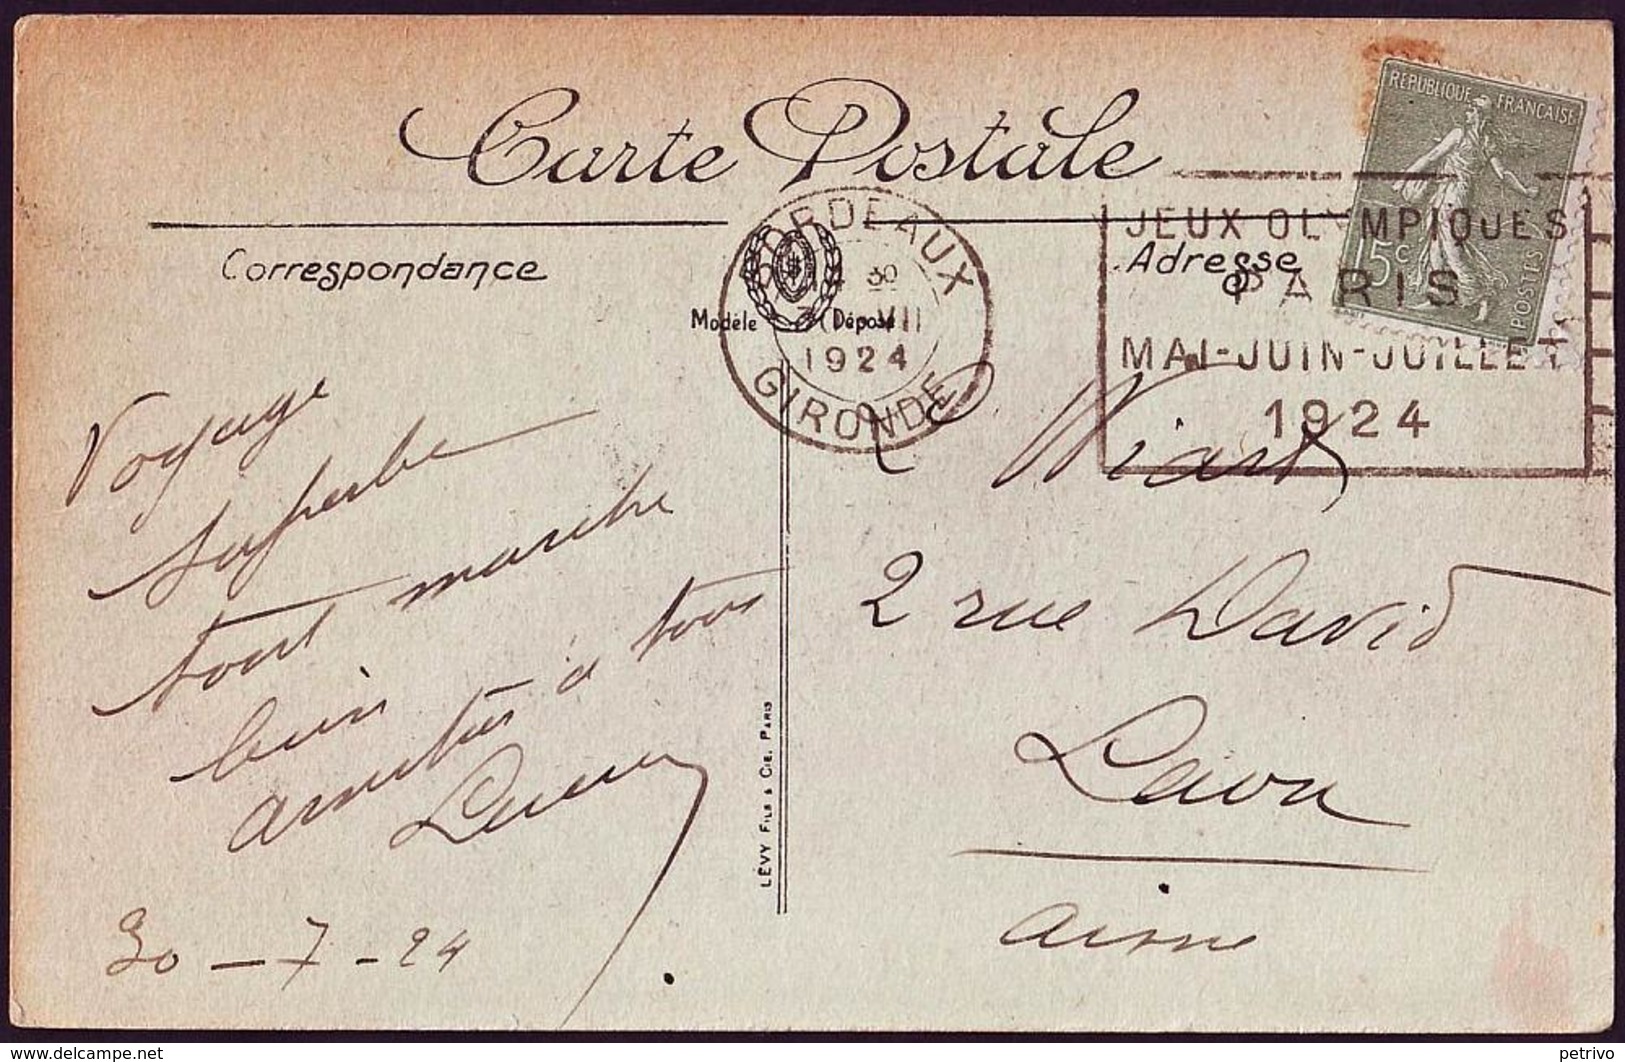 Carte Postale
RÉPUBLIQUE FRANÇAISE
15c
POSTES
BORDEAUX
14 30
30 VII
1924
GIRONDE
JEUX OLYMPIQUES
PARIS
MAI-JUIN-JUILLET
1924
Correspondance
Adresse
Modèle Déposé
Voyage
superbe
tout marche
bien
amitiés à tous
Lucien
30-7-24
LÉVY FILS & CIE, PARIS
Wiart
2 rue David
Laon
Aisne
petrivo